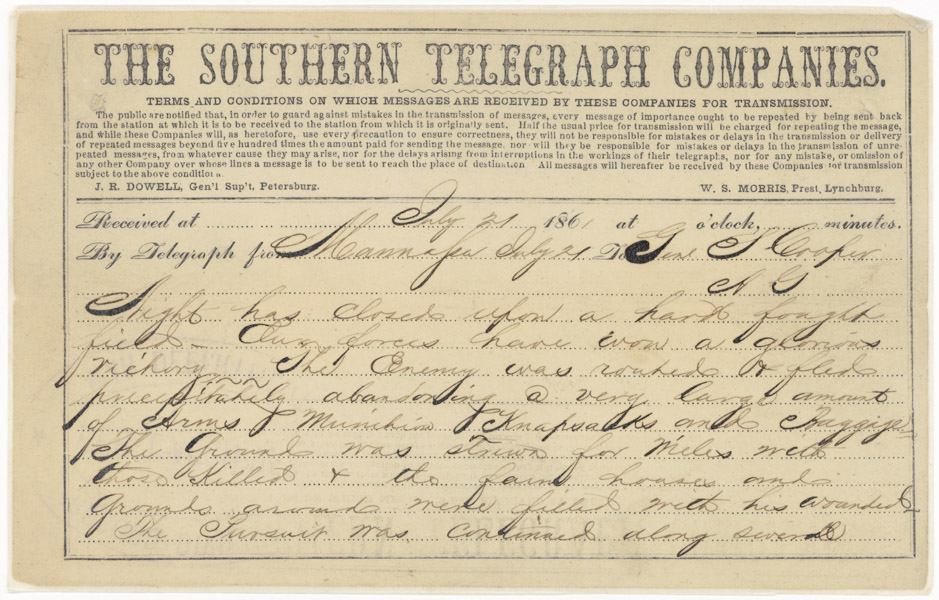 THE SOUTHERN TELEGRAPH COMPANIES.
TERMS AND CONDITIONS ON WHICH MESSAGES ARE RECEIVED BY THESE COMPANIES FOR TRANSMISSION.
The public are notified that, in order to guard against mistakes in the transmission of messages, every message of importance ought to be repeated by being sent back
from the station at which it is to be received to the station from which it is originally sent. Half the usual price for transmission will be charged for repeating the message,
and while these Companies will, as heretofore, use every precaution to ensure correctness, they will not be responsible for mistakes or delays in the transmission or delivery
of repeated messages beyond five hundred times the amount paid for sending the message, nor will they be responsible for mistakes or delays in the transmission of unre-
peated messages, from whatever cause they may arise, nor for the delays arising from interruptions in the workings of their telegraphs, nor for any mistake, or omission of
any other Company over whose lines a message is to be sent to reach the place of destination All messages will hereafter be received by these Companies for transmission
subject to the above condition
J. R. DOWELL, Gen'l Sup't, Petersburg. W. S. MORRIS, Prest, Lynchburg.
Received at July 21 1861 at o'clock, minutes.
By Telegraph from Mannassa July 21 To Genl S Cooper
A G
Night has closed upon a hard fought
field - Our forces have won a glorious
Victory. The Enemy was routed & fled
precipitately abandoning a very large amount
of Arms Munition Knapsacks and Baggage
The Ground was strewn for Miles with
those Killed & the farm houses and
Grounds around were filled with his wounded
The Pursuit was continued along several